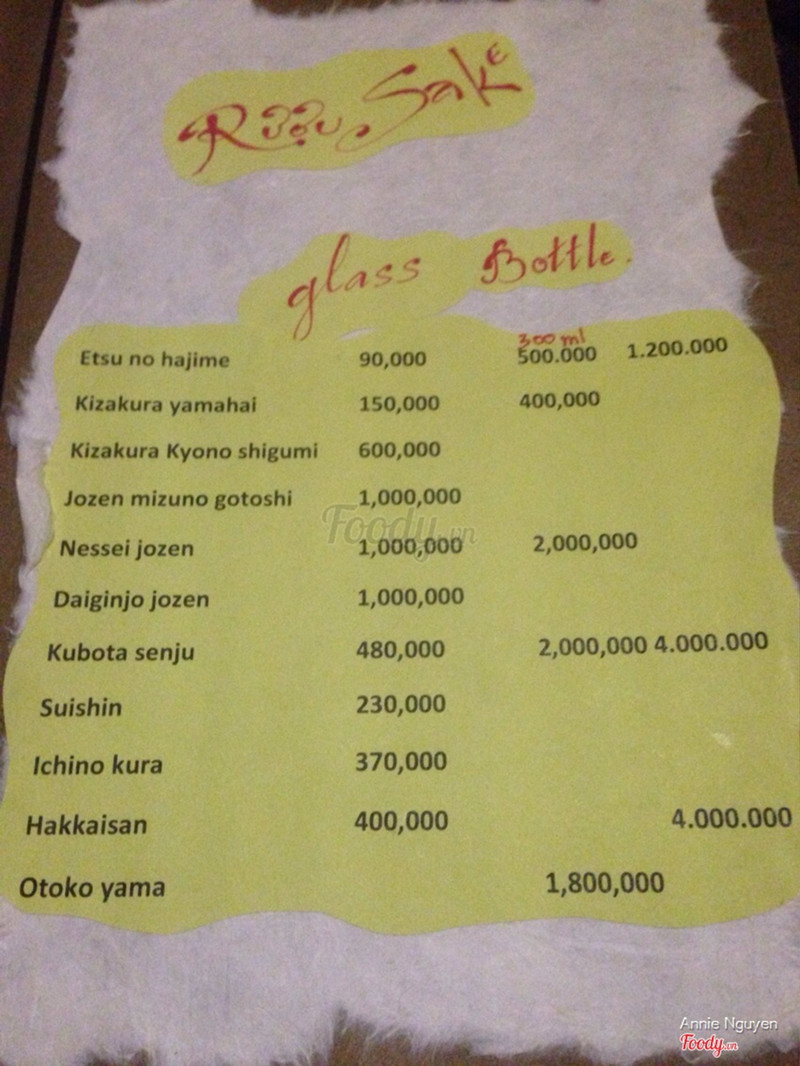 Rượu Sake
glass Bottle.
300 ml
Etsu no hajime 90,000 500.000 1.200.000
Kizakura yamahai 150,000 400,000
Kizakura Kyono shigumi 600,000
Jozen mizuno gotoshi 1,000,000
Foody.vn
Nessei jozen 1,000,000 2,000,000
Daiginjo jozen 1,000,000
Kubota senju 480,000 2,000,000 4.000.000
Suishin 230,000
Ichino kura 370,000
Hakkaisan 400,000 4.000.000
Otoko yama 1,800,000
Annie Nguyen
Foody.vn